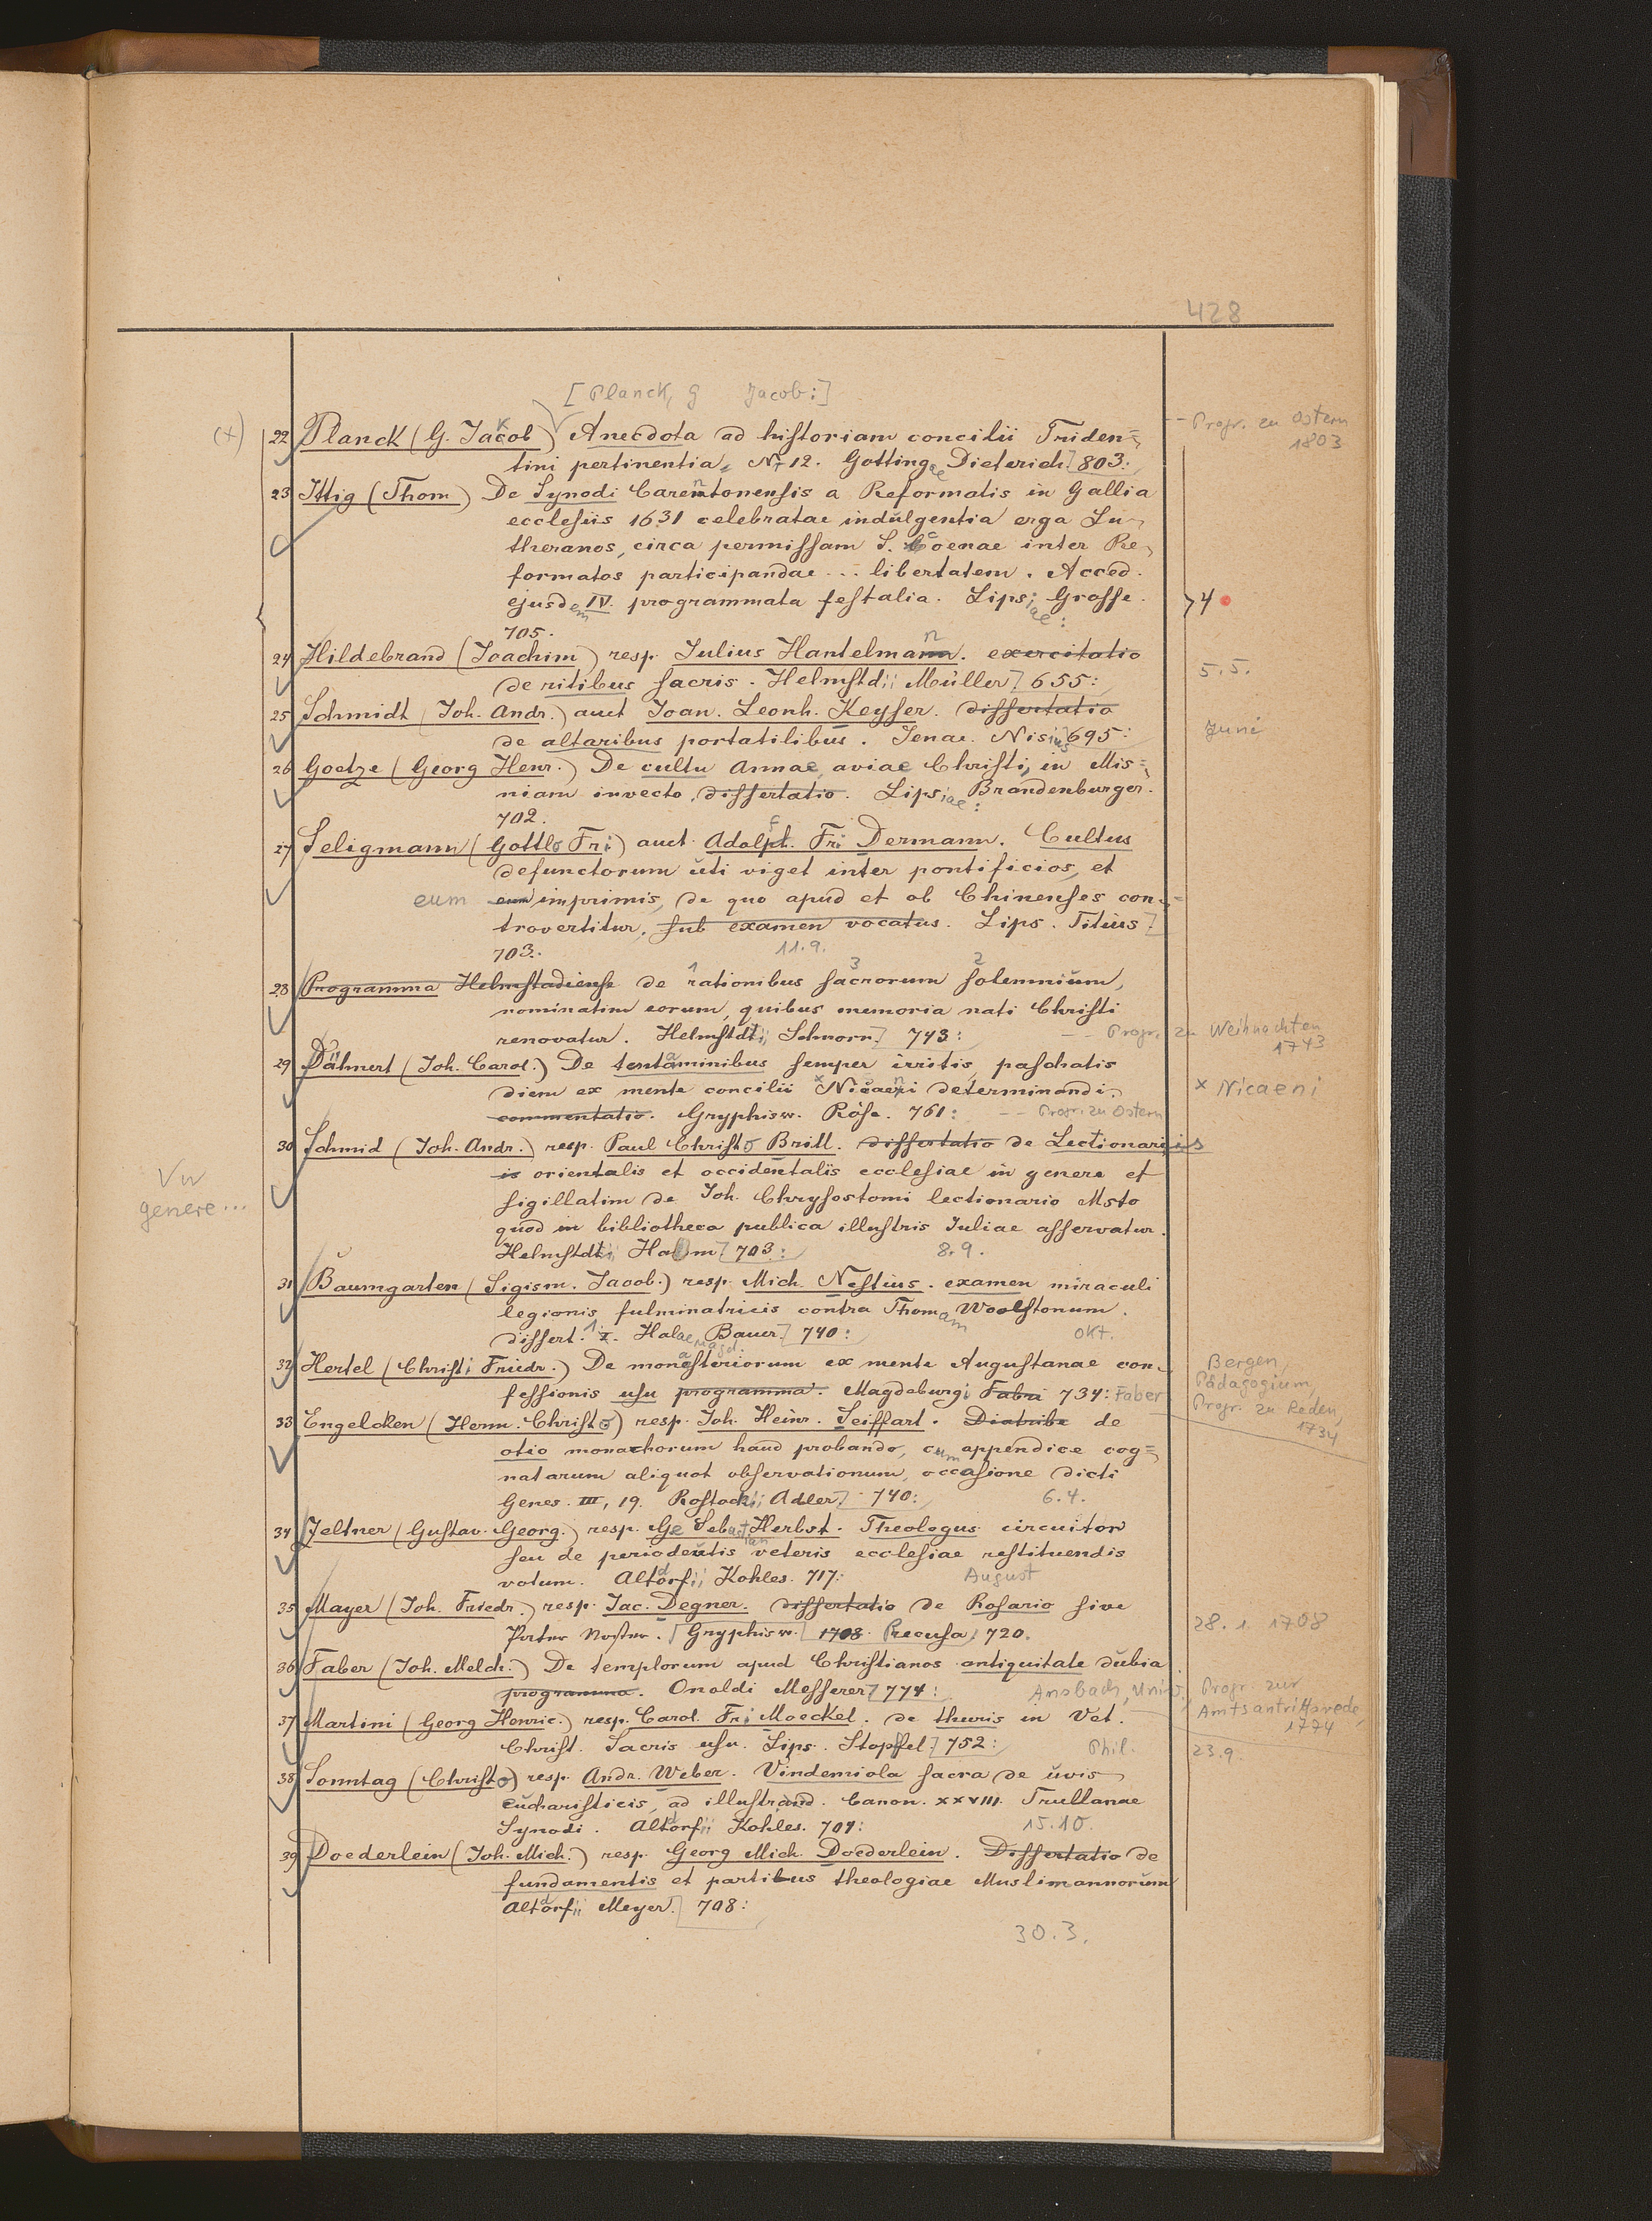 428
[Planck, G Jacob:]
(x) 22 Planck (G. Jacob) Anecdota ad historiam concilii Triden= -- Progr. zu Ostern 1803
tini pertinentia. No 12. Gottingae Dieterich. 803:
23 Ittig (Thom) De Synodi Carentonensis a Reformatis in Gallia
ecclesiis 1631 celebratae indulgentia erga Lu-
theranos, circa permissam S. Coenae inter Re-
formatos participandae ... libertatem. Acced.
ejusdem IV. programmata festalia. Lipsiae: Grosse. 4
705.
24 Hildebrand (Joachim) resp. Julius Hantelmann. exercitatio
de ritibus sacris. Helmstdii Müller. 655: 5.5.
25 Schmidt (Joh. Andr.) auct Joan. Leonh. Keyser. dissertatio
de altaribus portatilibus. Jenae. Nisius 695: Juni
26 Goetze (Georg Henr.) De cultu Annae, aviae Christi, in Mis=
niam invecto, dissertatio. Lipsiae: Brandenburger.
702.
27 Seligmann (Gottlo Fri) auct. Adolph. Fri Dermann. Cultus
defunctorum uti viget inter pontificios, et
eum eum imprimis, de quo apud et ob Chinenses con-
trovertitur, sub examen vocatus. Lips. Titius
703. 11.9.
1 3 2
28 Programma Helmstadiense de rationibus sacrorum solemnium,
nominatim eorum, quibus memoria nati Christi
renovatur. Helmstdtii Schnorr. 743: -- Progr. zu Weihnachten 1743
29 Dähnert (Joh. Carol.) De tentaminibus semper irritis, paschatis
diem ex mente concilii x Nicaeni determinandi. x Nicaeni
commentatio. Gryphisw. Röse. 761: -- Progr. zu Ostern
30 Schmid (Joh. Andr.) resp. Paul Christo Brill. dissertatio de Lectionariis
is orientalis et occidentalis ecclesiae in genere et
Vw genere...
sigillatim de Joh. Chrysostomi lectionario Msto
quod in bibliotheca publica illustris Juliae asservatur.
Helmstdtii Hamm. 703: 8.9.
31 Baumgarten (Sigism. Jacob.) resp. Mich. Nestius. examen miraculi
legionis fulminatricis contra Thomam Woolstonum.
dissert. 1. I. Halae Magd. Bauer. 740: Okt.
32 Hertel (Christi Friedr.) De monasteriorum ex mente Augustanae con- Bergen,
fessionis usu programma. Magdeburgi Fabri 734: Faber Pädagogium,
Progr. zu Reden, 1734
33 Engelcken (Herm. Christo) resp. Joh. Heinr. Seiffart. Diatribe de
otio monachorum haud probando, cum appendice cog=
natarum aliquot observationum, occasione dicti
Genes. III, 19. Rostochii Adler. 740: 6.4.
34 Zeltner (Gustav. Georg.) resp. Ge Sebastian Herbst. Theologus circuitor
seu de periodeutis veteris ecclesiae restituendis
votum. Altdorfii Kohles. 717: August
35 Mayer (Joh. Friedr.) resp. Jac. Degner. dissertatio de Rosario sive
Pater Noster. Gryphisw. 1708. Recusa 720. 28.1.1708
36 Faber (Joh. Melch.) De templorum apud Christianos antiquitate dubia
programma. Onoldi Messerer 774: Ansbach, Univ., Progr. zur
Amtsantrittsrede, 1774
37 Martini (Georg Henric.) resp. Carol. Fri Moeckel. de thuris in Vet.
Christ. Sacris usu. Lips. Stopffel. 752: Phil. 23.9.
38 Sonntag (Christo) resp. Andr. Weber. Vindemiola sacra de uvis
eucharisticis, ad illustrand. Canon. XXVIII. Trullanae
Synodi. Altdorfii Kohles. 704: 15.10.
39 Doederlein (Joh. Mich.) resp. Georg Mich. Doederlein. Dissertatio de
fundamentis et partibus theologiae Muslimannorum
Altdorfii Meyer. 708:
30.3.